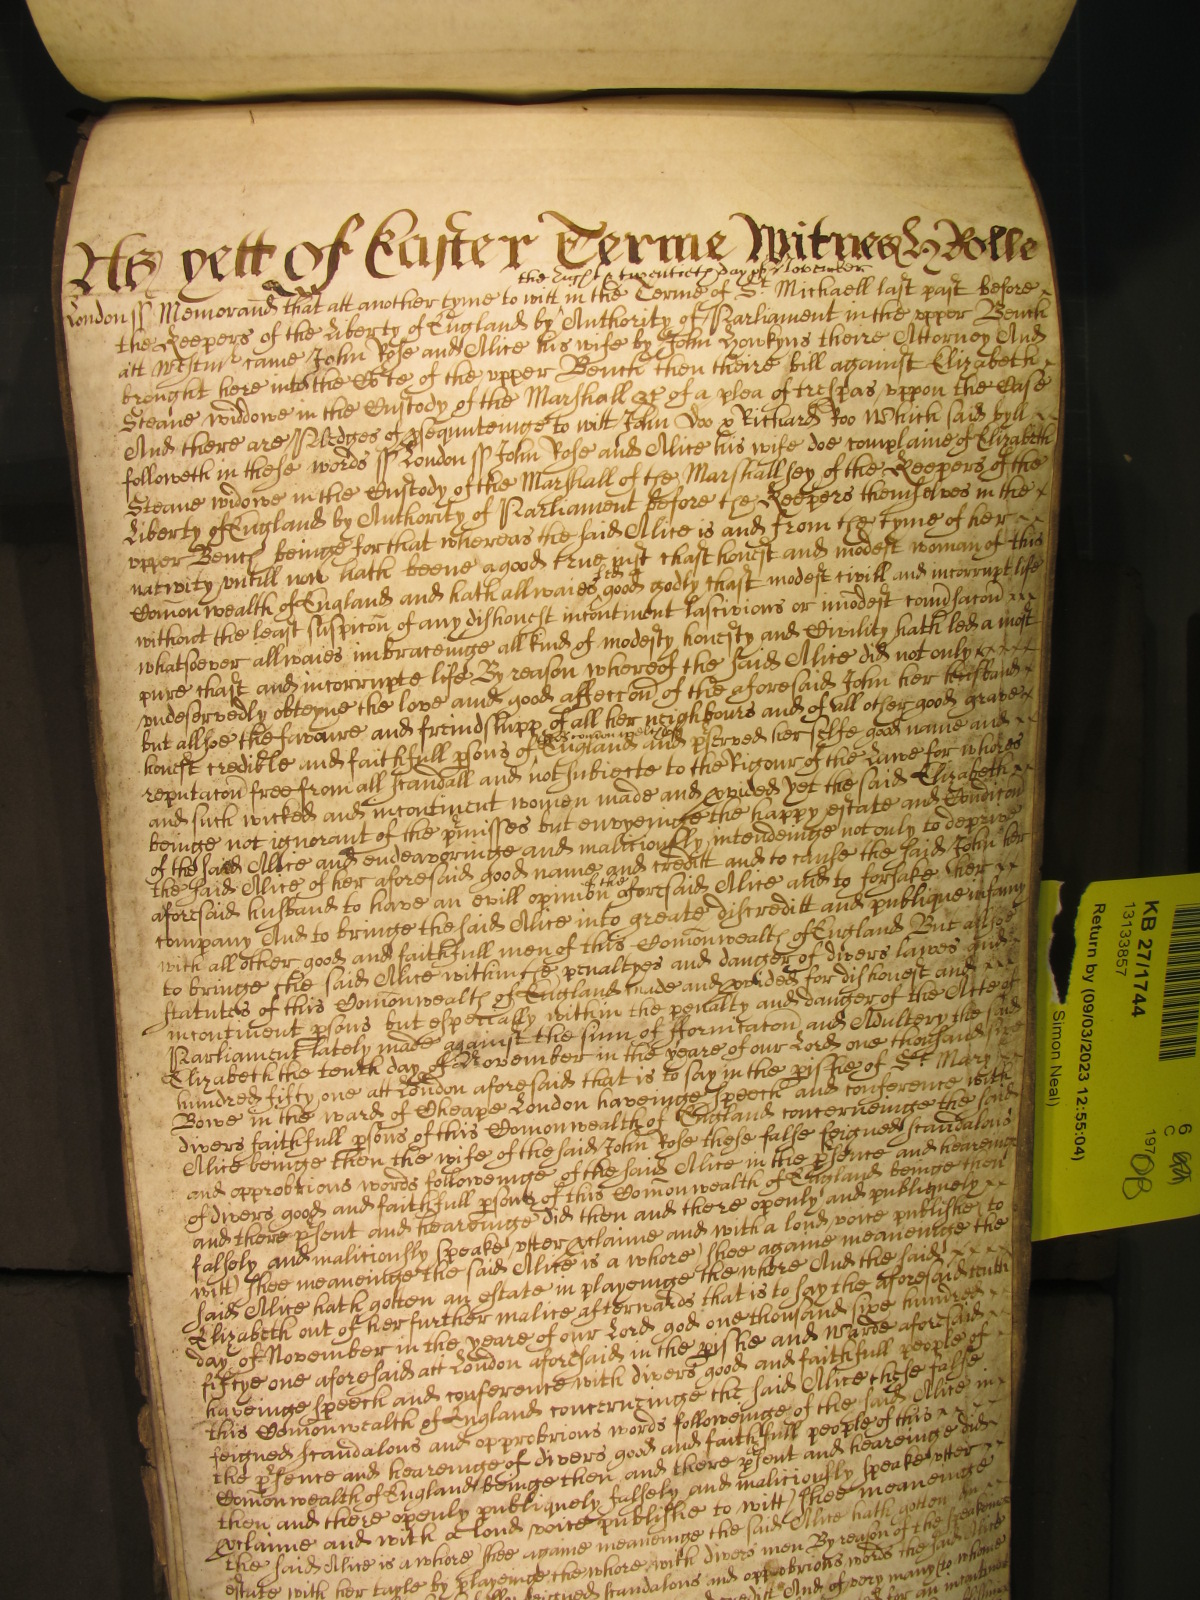 As yett of Easter Terme Witnes H Rolle
the First & twentieth day of November
London ss Memorand that att another tyme to witt in the Terme of St Michaell last past before
the Keepers of the Liberty of England by Authority of Parliament in the upper Bench
att Westmr came John Rose and Alice his wife by John Howkyns theire Attorney And
brought here into the Cte of the upper Bench then theire bill against Elizabeth
Steane widdowe in the Custody of the Marshall &c of a plea of trespas uppon the Case
And there are Pledges of psequuteinge to witt John Doo & Richard Roo Which said byll
followeth in these words ss London ss John Rose and Alice his wife doe complaine of Elizabeth
Steane widowe in the Custody of the Marshall of the Marshallsey of the Keepers of the
Liberty of England by Authority of Parliament before the Keepers themselves in the
upper Bench beinge for that whereas the said Alice is and from the tyme of her
nativity untill now hath beene a good true just chast honest and modest woman of this
Comonwealth of England and hath allwaies led a good godly chast modest civill and incorrupt life
without the least suspicon of any dishonest incontinent lascivious or imodest comdsacon
whatsoever allwaies imbraceinge all kind of modesty honesty and Civility hath led a most
pure chast and incorrupte life By reason whereof the said Alice did not only
undeservedly obteyne the love and good affeccon of the aforesaid John her husband
but allsoe the favoure and freindshipp of all her neighbours and of all other good grave
honest credible and faithfull psons of this Comonwealth of England and pserved her selfe good name and
reputacon free from all scandall and not subiecte to the Rigour of the Lawe for whores
and such wicked and incontinent women made and pvided yet the said Elizabeth
beinge not ignorant of the pmisses but envyeinge the happy estate and Condicon
of the said Alice and endeavoringe and maliciously intendeinge not only to deprive
the said Alice of her aforesaid good name and creditt and to cause the said John her
aforesaid husband to have an evill opinion of the aforesaid Alice and to forsake her
company And to bringe the said Alice into greate discreditt and publique infamy
with all other good and faithfull men of this Comonwealth of England But allsoe
to bringe the said Alice within the penaltyes and danger of divers lawes and
statutes of this Comonwealth of England made and pvided for dishonest and
incontinent psons but especially within the penalty and danger of the Acte of
Parliament lately made against the sinn of fornicacon and Adultery the said
Elizabeth the tenth day of November in the yeare of our Lord one thousand sixe
hundred fifty one att London aforesaid that is to say in the pishe of St Mary
Bowe in the ward of Cheape London haveinge speech and conference with
divers faithfull psons of this Comonwealth of England concerneinge the said
Alice beinge then the wife of the said John Rose these false feigned scandalous
and opprobrious words followeinge of the said Alice in the psence and heareinge
of divers good and faithfull psons of this Comonwealth of England beinge then
and there psent and heareinge did then and there openly and publiquely
falsely and maliciously speake utter xclaime and with a loud voice publishe to
witt shee meaneinge the said Alice is a whore shee againe meaneinge the
said Alice hath gotten an estate in playeinge the whore And the said
Elizabeth out of her further malice afterwards that is to say the aforesaid tenth
day of November in the yeare of our Lord god one thousand sixe hundred
fiftye one aforesaid att London aforesaid in the pishe and Warde aforesaid
haveinge speech and conference with divers good and faithfull people of
this Comonwealth of England concerneinge the said Alice these false
feigned scandalous and opprobrious words followeinge of the said Alice in
the psence and heareinge of divers good and faithfull people of this
Comonwealth of England beinge then and there psent and heareinge did
then and there openly publiquely falsely and maliciously speake utter
xclaime and with a loud voice publishe to witt shee meaneinge
the said Alice is a whore shee againe meaneinge the said Alice hath gotten an
estate with her tayle by playeinge the whore with divers men By reason of the speakeinge
feigned scandalous and opprobrious words the said Alice
creditt And of very many to whome
for an incontinent
KB 27/1744
13133857
Return by (09/03/2023 12:55:04)
Simon Neal)
6
C
197